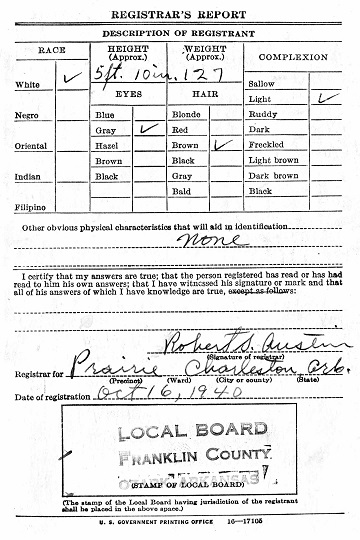 REGISTRAR'S REPORT
DESCRIPTION OF REGISTRANT
RACE
HEIGHT (Approx.)
WEIGHT (Approx.)
COMPLEXION
5ft. 10in. 127
White ✓
EYES
HAIR
Sallow
Light ✓
Negro
Blue
Blonde
Ruddy
Gray ✓
Red
Dark
Oriental
Hazel
Brown ✓
Freckled
Brown
Black
Light brown
Indian
Black
Gray
Dark brown
Bald
Black
Filipino
Other obvious physical characteristics that will aid in identification
None
I certify that my answers are true; that the person registered has read or has had
read to him his own answers; that I have witnessed his signature or mark and that
all of his answers of which I have knowledge are true, except as follows:
Robert S. Austin
(Signature of registrar)
Registrar for Prairie Charleston Ark.
(Precinct) (Ward) (City or county) (State)
Date of registration Oct 16, 1940
LOCAL BOARD
FRANKLIN COUNTY
OZARK ARKANSAS
(STAMP OF LOCAL BOARD)
(The stamp of the Local Board having jurisdiction of the registrant
shall be placed in the above space.)
U. S. GOVERNMENT PRINTING OFFICE 16—17105